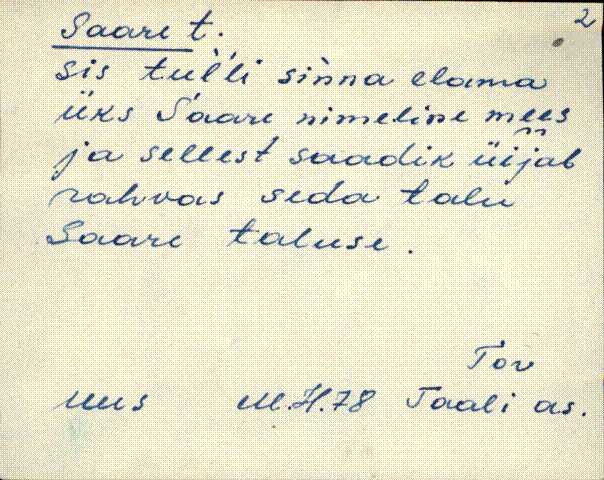 2
Saare t.
sis tul̀li sìnna elama
üks Saare nimeline mees
ja sellest saadik üijab
rahvas seda talu
Saare taluse.
Tov
uus M.H.78 Taali as.